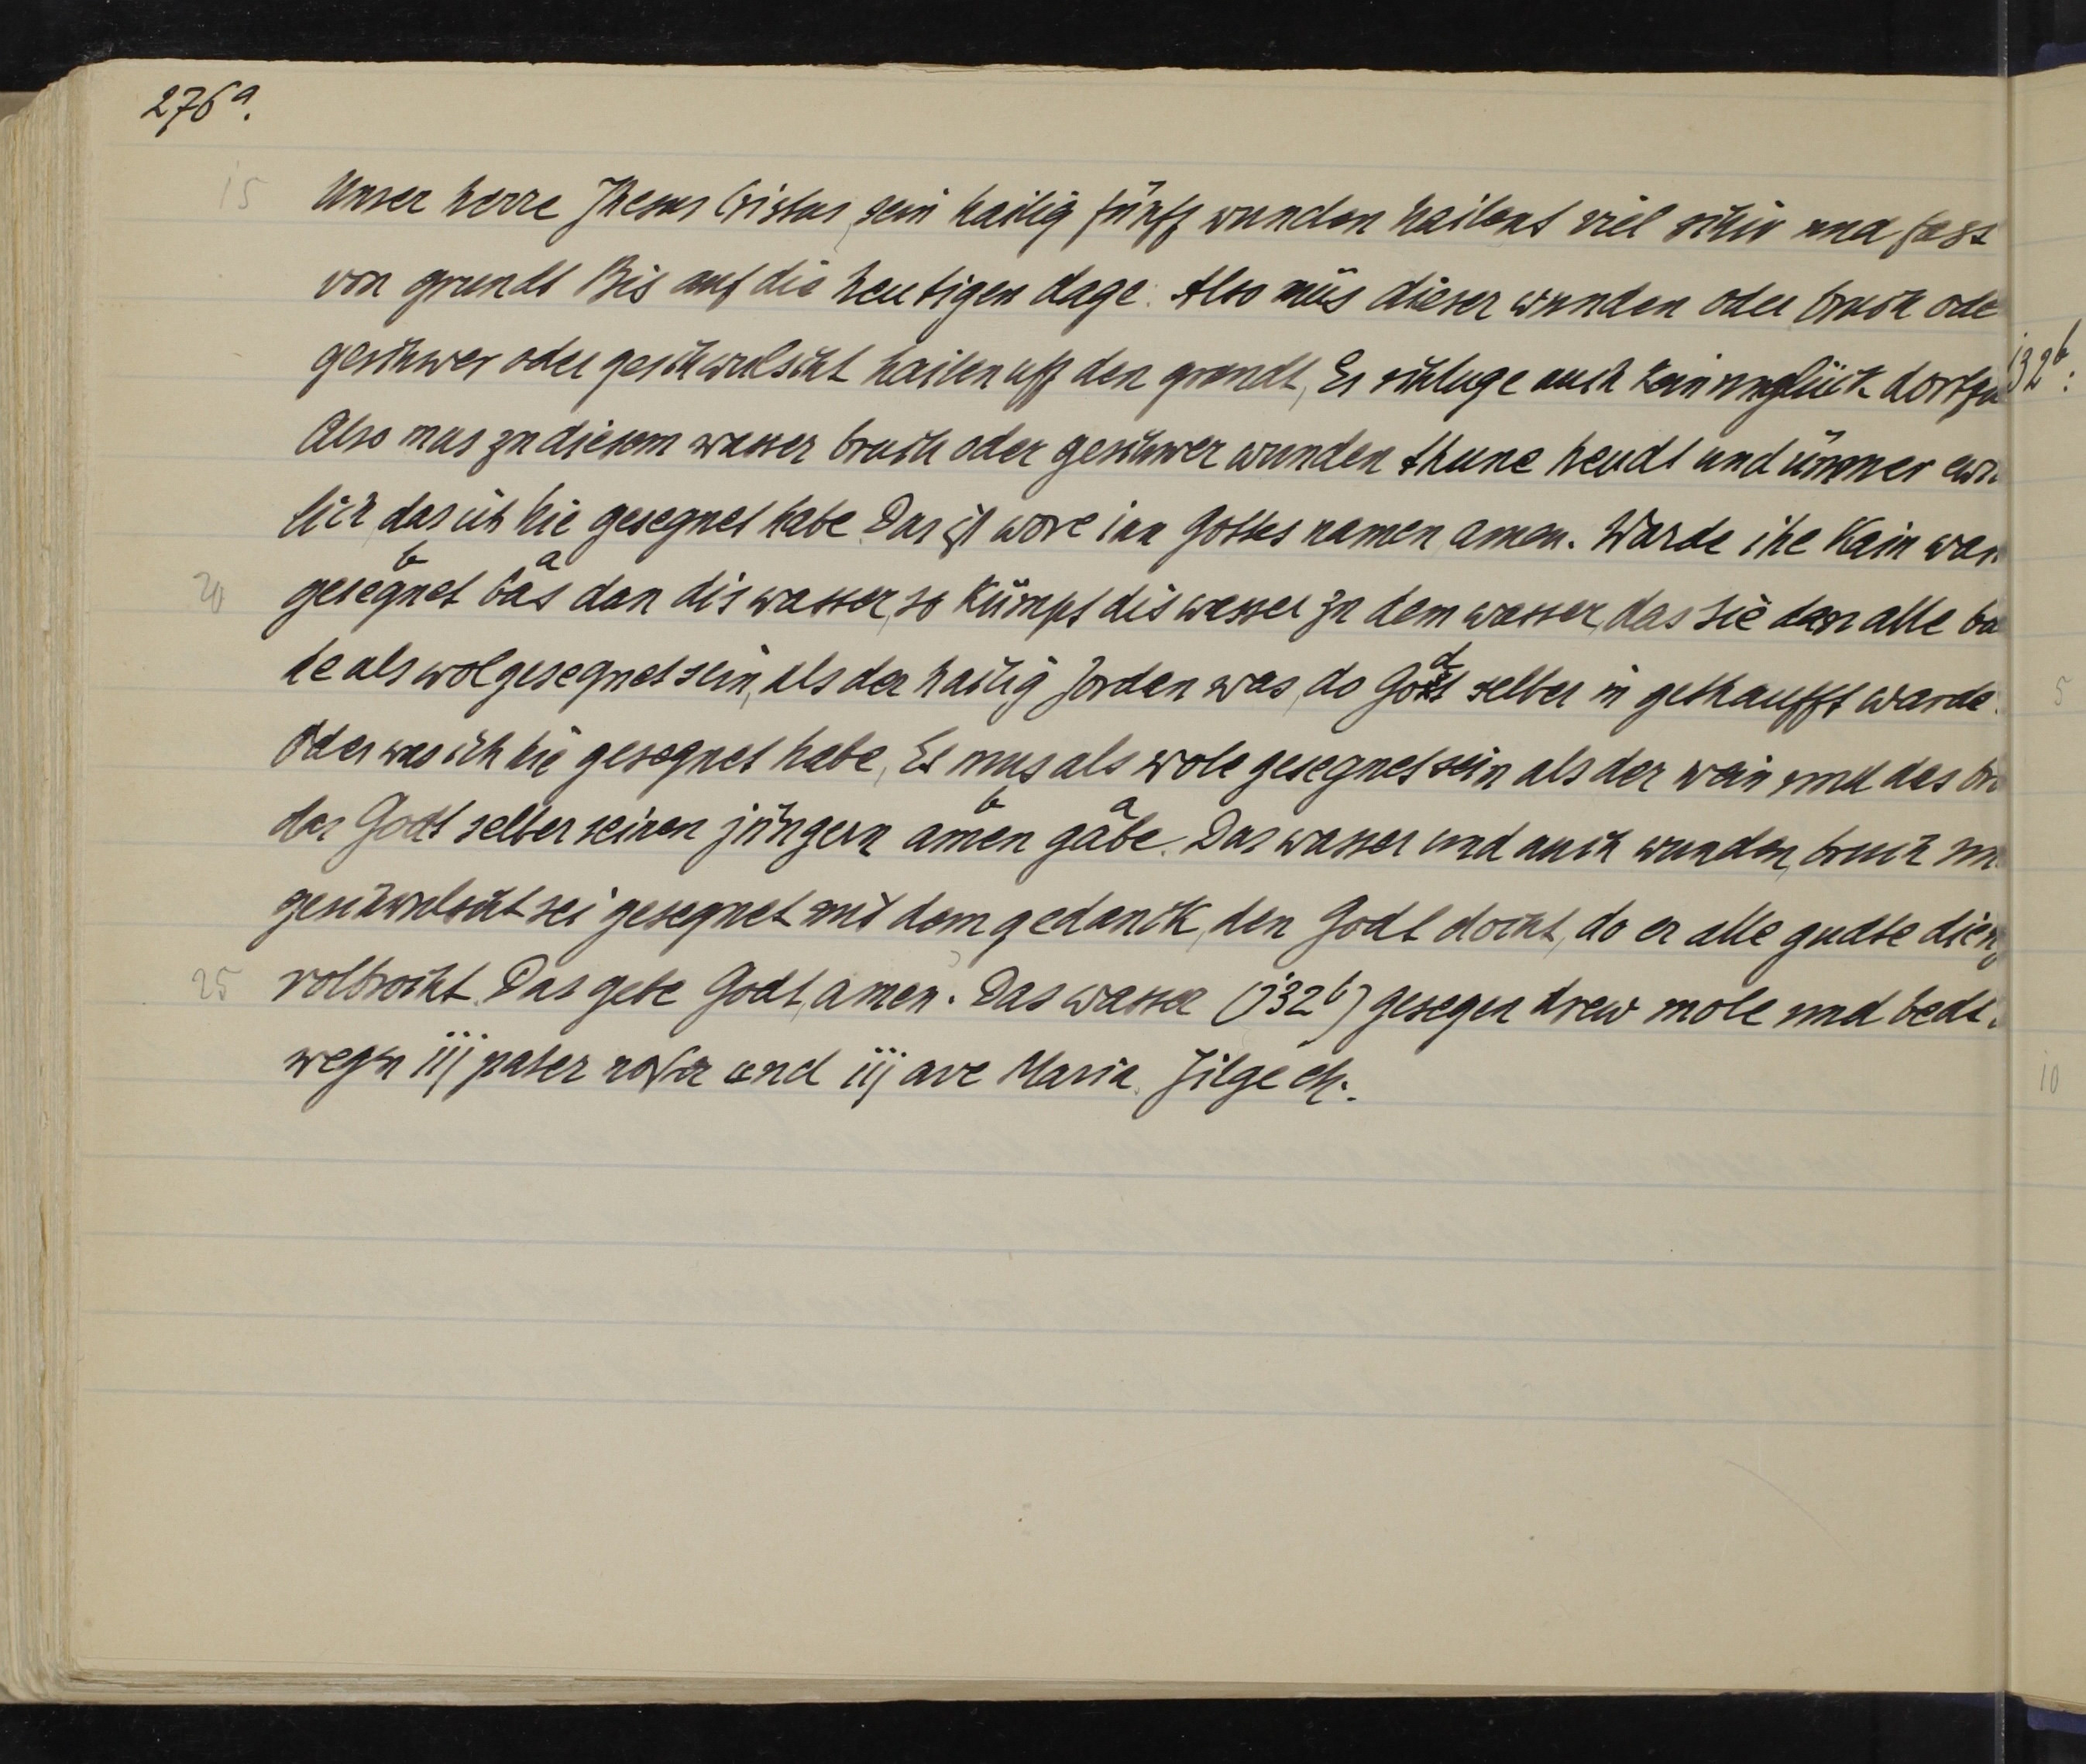 276a.
15 Unser herre Jhesus Cristus, sein hailig fünff wunden hailent viel schir und fast
von grundt Bis auf die heutigen dage. Also müs dieser wunden oder bruch ode
geschwer oder geschwulscht hailen uff den grundt, Es schluge auch kein unglück dortzu
132b:
Also mus zu diesem wasser bruch oder geschwer wunden thune heudt und ümmer ewi
lich, das ich hie gesegnet habe. Das ist wore inn Gottes namen, amen. Warde ihe kain was
b a
20 gesegnet bas dan dis wasser, so kümpt dis wasser zu dem wasser, das sie dan alle ba
de als wol gesegnet sein, als der hailig Jordan was, do Godt selber in gethaufft warde.
5
Oder was ich hie gesegnet habe, Es mus als wole gesegnet sein als der wein und das bro
b a
das Godt selber seinen jüngern amen gabe. Das wasser und auch wunden, bruch un
geschwulscht sei gesegnet mit dem gedanck, den Godt docht, do er alle gudte dieng
25 volbrocht. Das gebe Godt, amen. Das wasser (132b) gesegen drew mole und bedt.
wegen iij pater noster und iij ave Maria. Jilge etc.
10